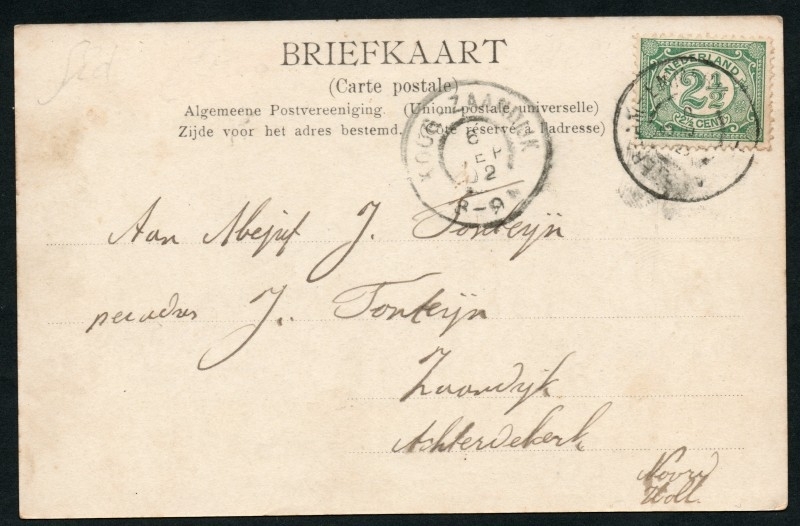 BRIEFKAART
(Carte postale)
Algemeene Postvereeniging. (Union postale universelle)
Zijde voor het adres bestemd. (Côté réservé à l'adresse)
NEDERLAND
2½
2½ CENT
KOOG ZAANDIJK
6
02
8-9 N
Aan Mejuf J. Fonteijn
per adres J. Fonteijn
Zaandijk
Achter de kerk
Noord
Holl.